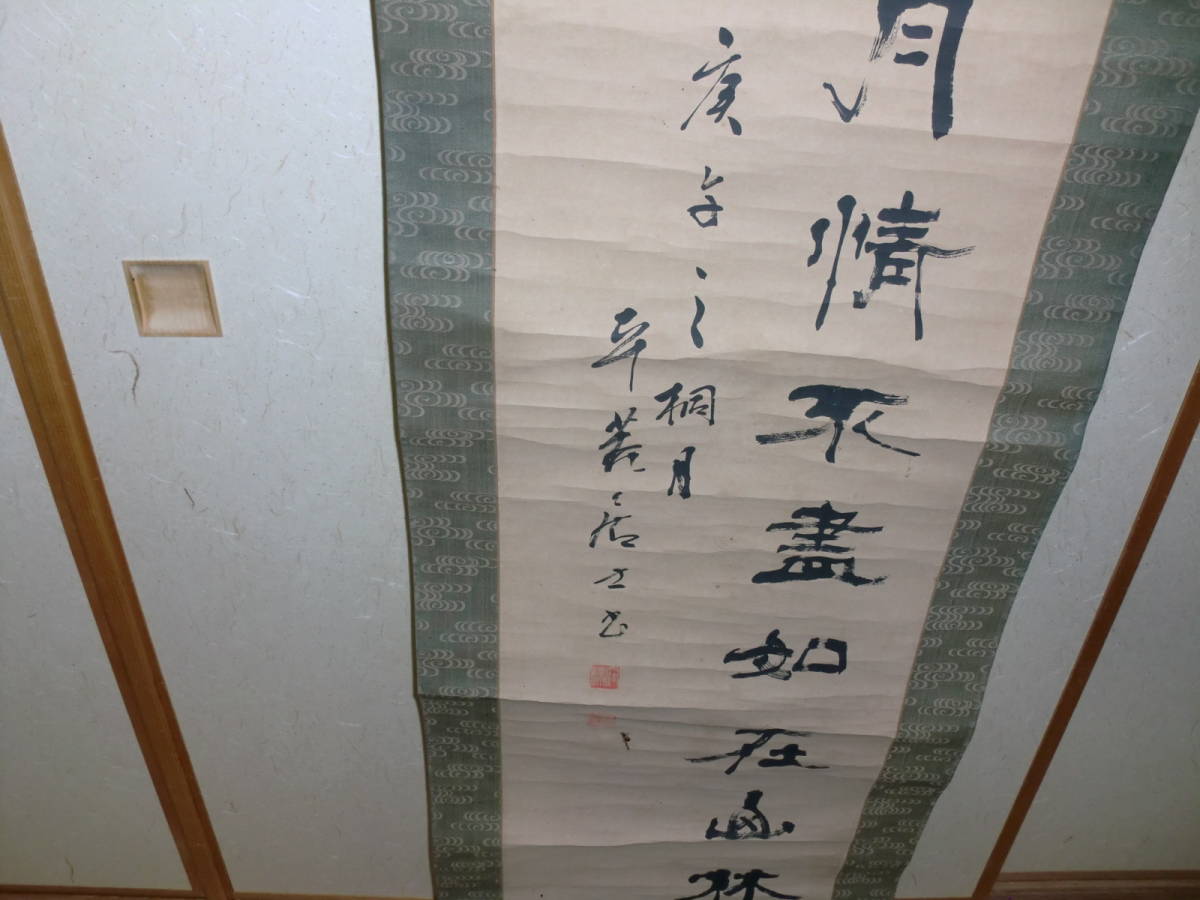 月情不盡如在山林
庚午之桐月
平菴居士書